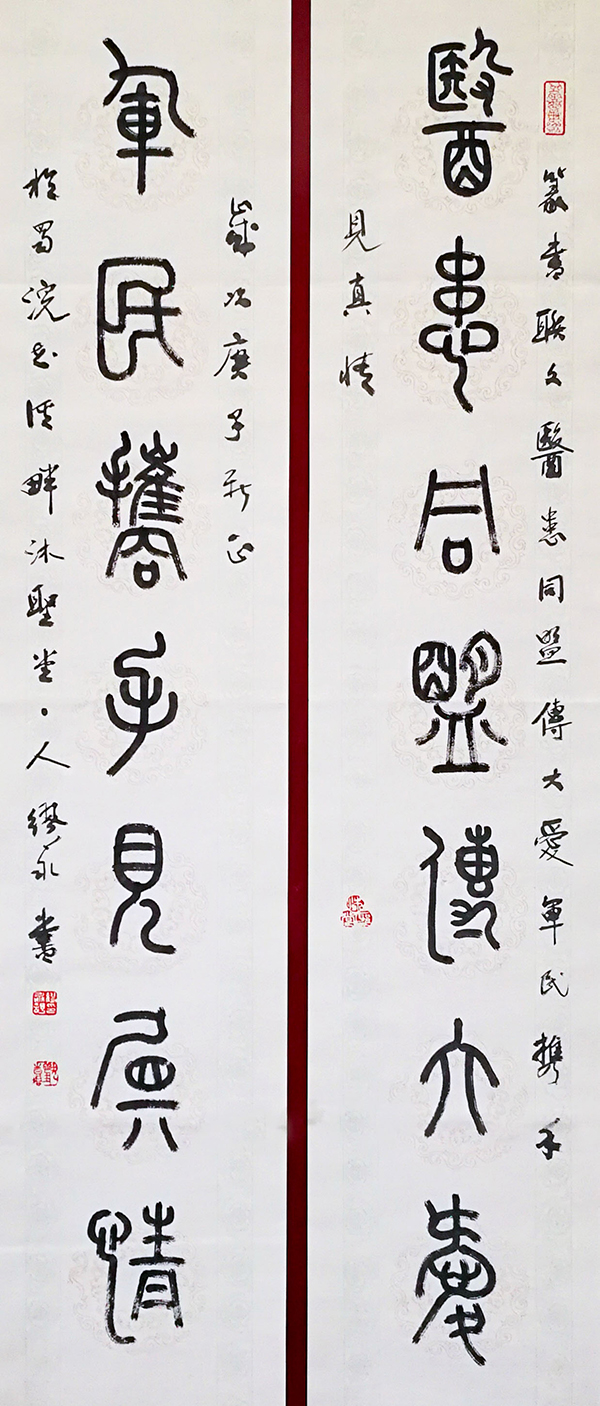 篆書聯文醫患同盟傳大愛軍民攜手
醫患同盟傳大愛
見真情
歲次庚子新正
軍民攜手見真情
於蜀浣花溪畔沐聖堂丶人繆永書